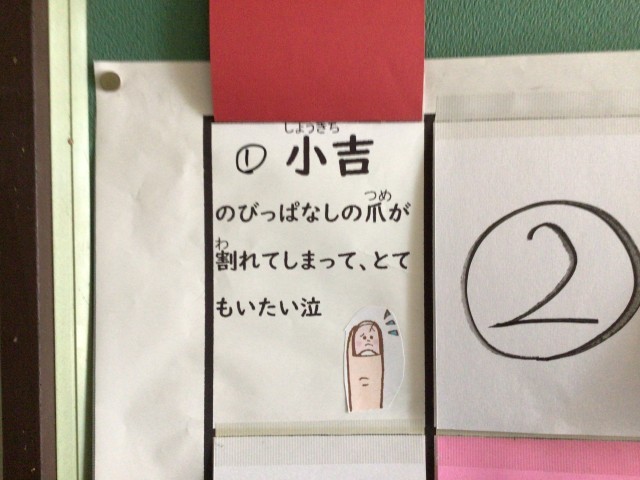 しょうきち
① 小吉
つめ
のびっぱなしの爪が
わ
割れてしまって、とて
もいたい泣
②